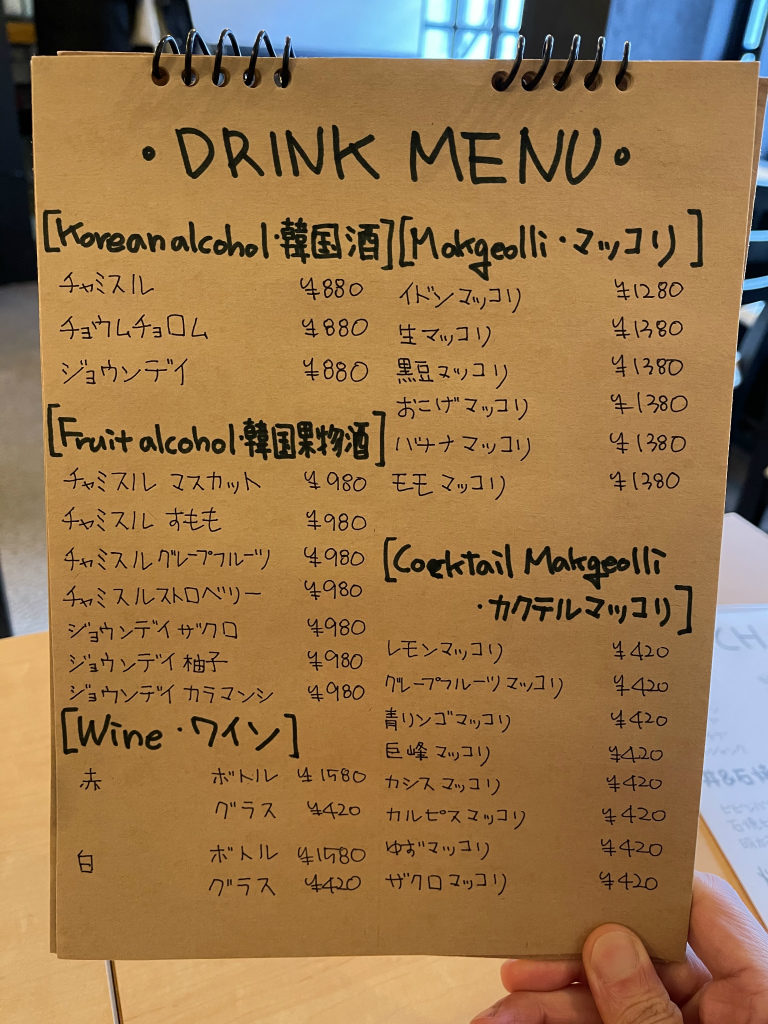 ・DRINK MENU・
[Korean alcohol・韓国酒]
チャミスル ¥880
チョウムチョロム ¥880
ジョウンデイ ¥880
[Fruit alcohol・韓国果物酒]
チャミスル マスカット ¥980
チャミスル すもも ¥980
チャミスル グレープフルーツ ¥980
チャミスル ストロベリー ¥980
ジョウンデイ ザクロ ¥980
ジョウンデイ 柚子 ¥980
ジョウンデイ カラマンシ ¥980
[Wine・ワイン]
赤 ボトル ¥1580
グラス ¥420
白 ボトル ¥1580
グラス ¥420
[Makgeolli・マッコリ]
イドン マッコリ ¥1280
生マッコリ ¥1380
黒豆 マッコリ ¥1380
おこげ マッコリ ¥1380
バナナ マッコリ ¥1380
モモ マッコリ ¥1380
[Cocktail Makgeolli
・カクテルマッコリ]
レモンマッコリ ¥420
グレープフルーツ マッコリ ¥420
青リンゴマッコリ ¥420
巨峰 マッコリ ¥420
カシス マッコリ ¥420
カルピス マッコリ ¥420
ゆずマッコリ ¥420
ザクロ マッコリ ¥420